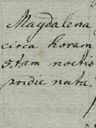 Magdalena
circa horam
8tam noctis
pridie nata.